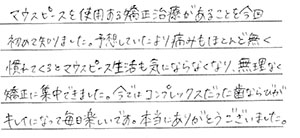 マウスピースを使用する矯正治療があることを今回
初めて知りました。予想していたより痛みもほとんど無く
慣れてくるとマウスピース生活も気にならなくなり、無理なく
矯正に集中できました。今ではコンプレックスだった歯ならびが
キレイになって毎日楽しいです。本当にありがとうございました。